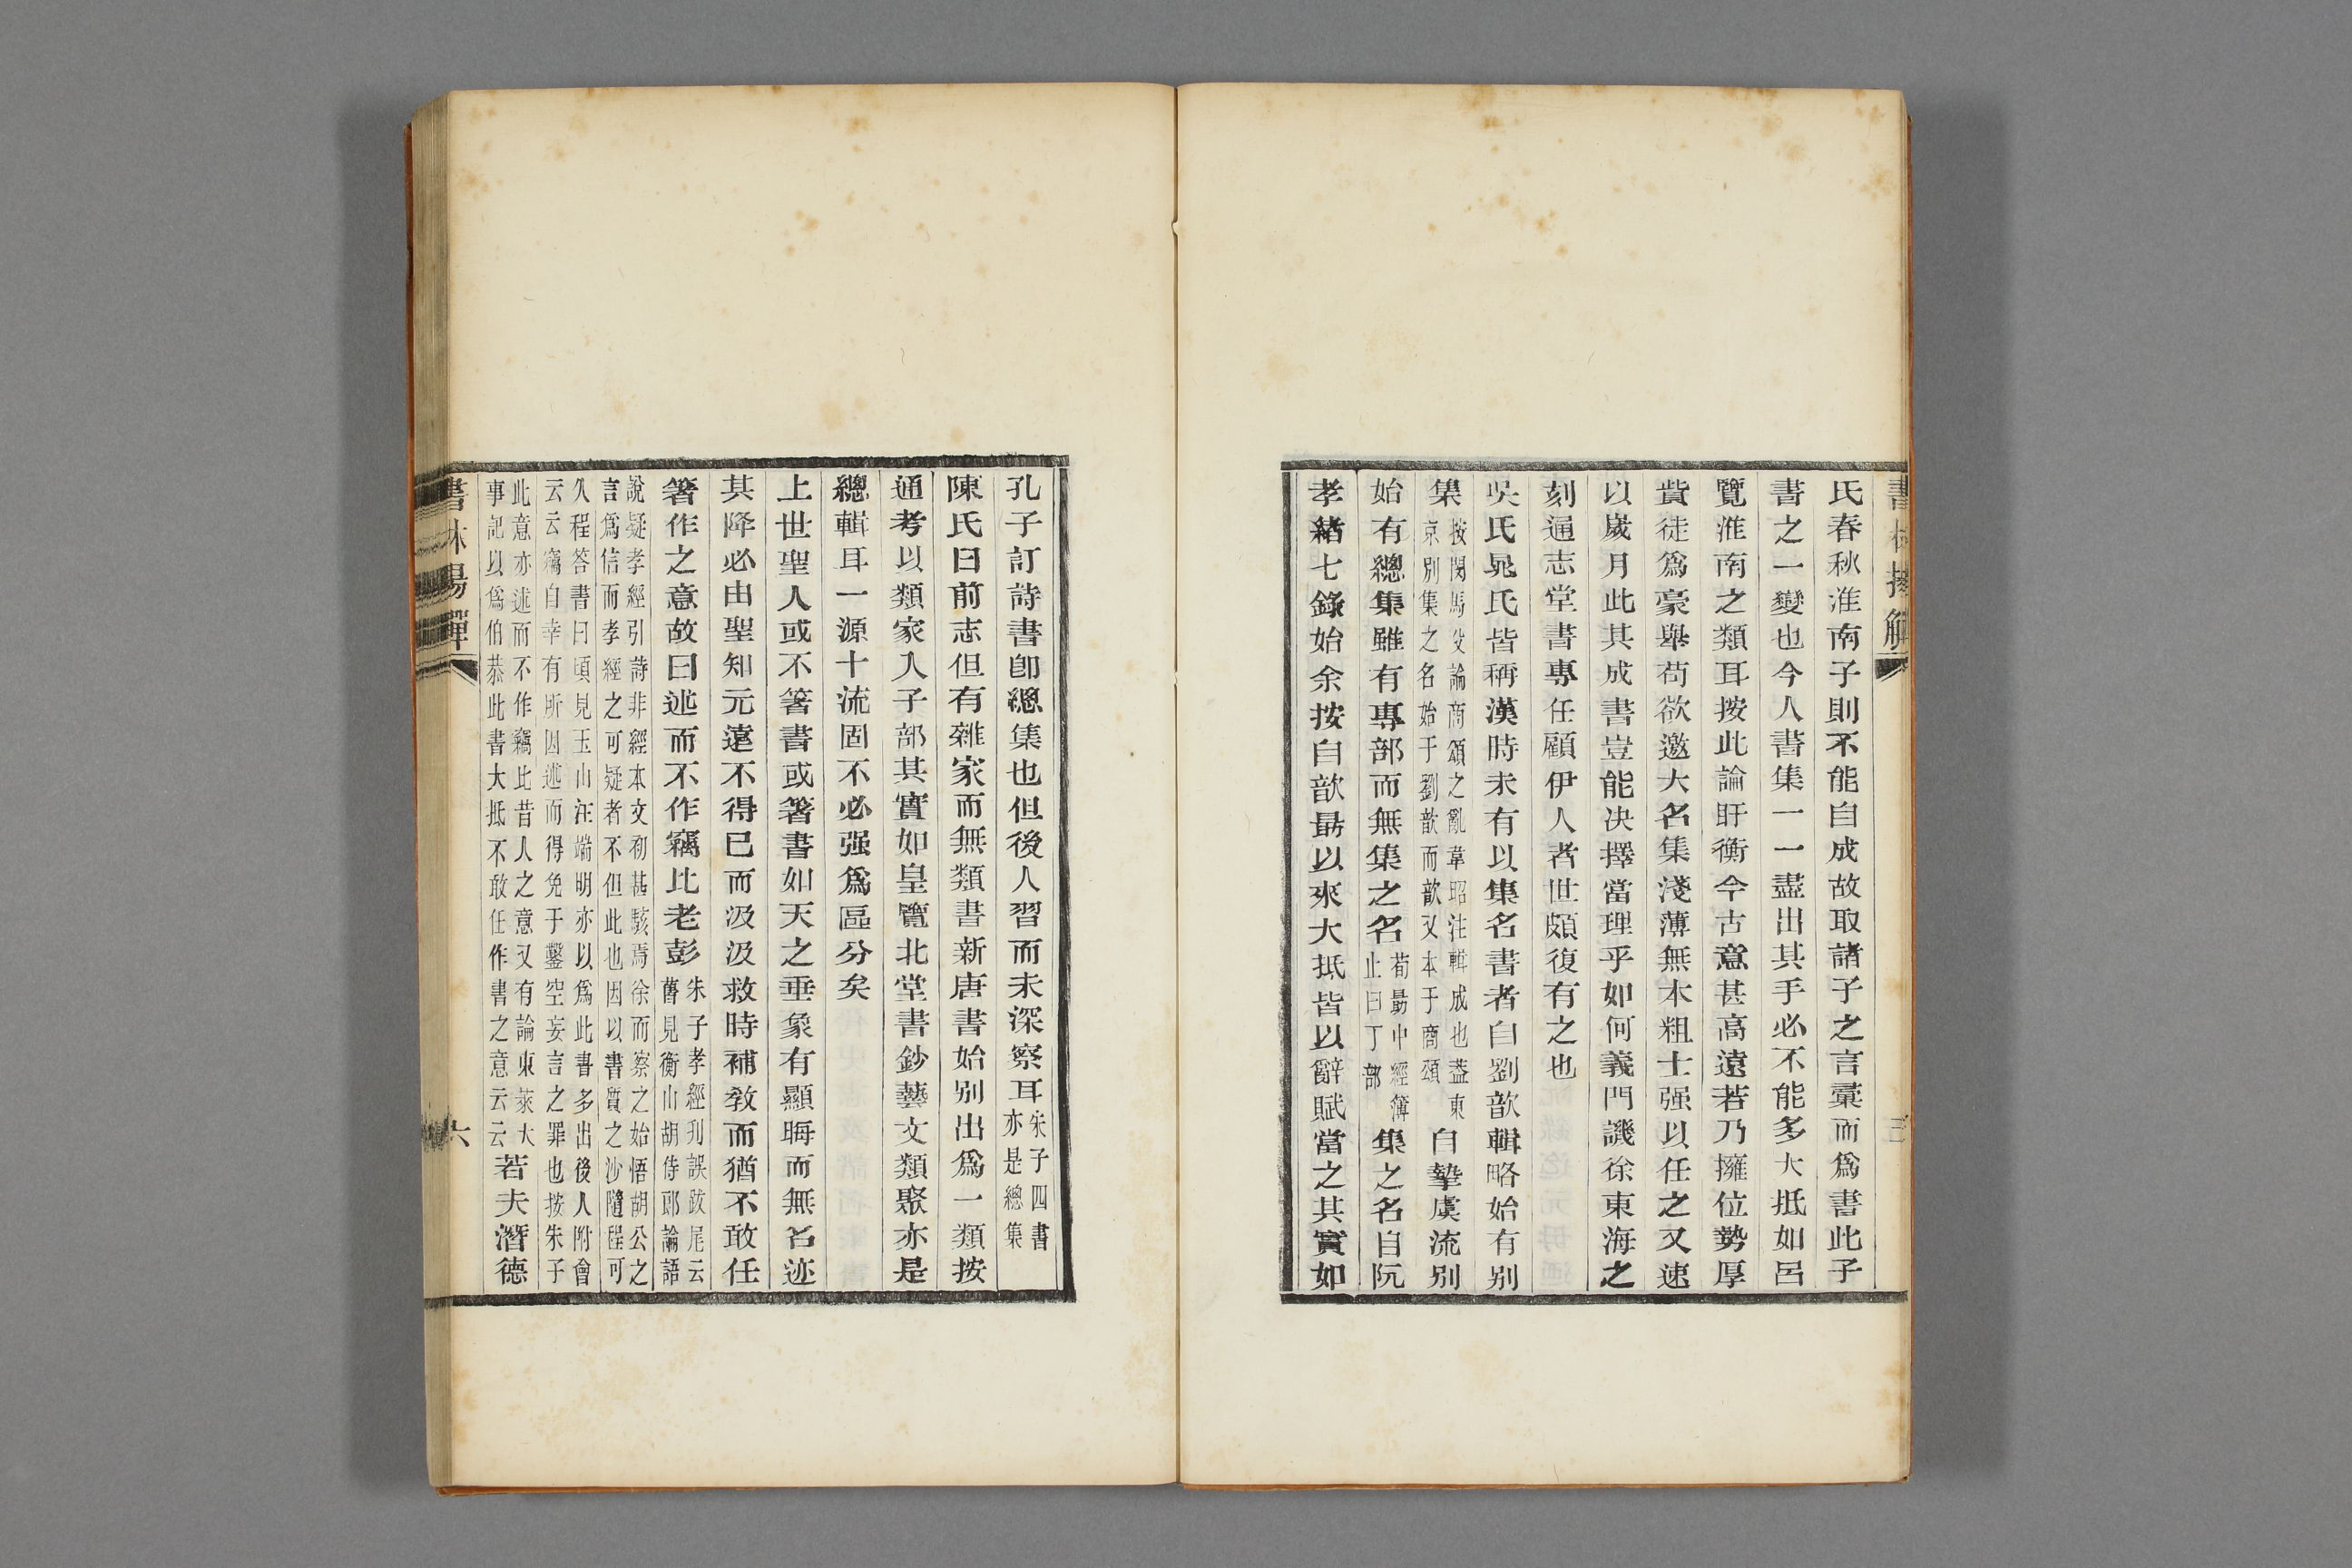 氏春秋淮南子則不能自成故取諸子之言彚而爲書此子
書之一變也今人書集一一盡出其手必不能多大抵如呂
覽淮南之類耳按此論盱衡今古意甚高遠若乃擁位勢厚
貲徒爲豪舉苟欲邀大名集淺薄無本粗士强以任之又速
以歲月此其成書豈能决擇當理乎如何義門譏徐東海之
刻通志堂書專任顧伊人者世頗復有之也
吳氏晁氏皆稱漢時未有以集名書者自劉歆輯略始有别
集
按閔馬父論商頌之亂韋昭注輯成也葢東
京别集之名始于劉歆而歆又本于商頌
自摯虞流别
始有總集雖有專部而無集之名
荀勗中經簿
止曰丁部
集之名自阮
孝緒七錄始余按自歆勗以來大抵皆以辭賦當之其實如
孔子訂詩書卽總集也但後人習而未深察耳
朱子四書
亦是總集
陳氏曰前志但有雜家而無類書新唐書始别出爲一類按
通考以類家入子部其實如皇覽北堂書鈔藝文類聚亦是
總輯耳一源十流固不必强爲區分矣
上世聖人或不箸書或箸書如天之垂象有顯晦而無名迹
其降必由聖知元遠不得已而汲汲救時補敎而猶不敢任
箸作之意故曰述而不作竊比老彭
朱子孝經刋誤跋尾云
舊見衡山胡侍郎論語
說疑孝經引詩非經本文初甚駭焉徐而察之始悟胡公之
言爲信而孝經之可疑者不但此也因以書質之沙隨程可
久程答書曰頃見玉山汪端明亦以爲此書多出後人附會
云云竊自幸有所因述而得免于鑿空妄言之罪也按朱子
此意亦述而不作竊比昔人之意又有論東萊大
事記以爲伯恭此書大抵不敢任作書之意云云
若夫潛德
六